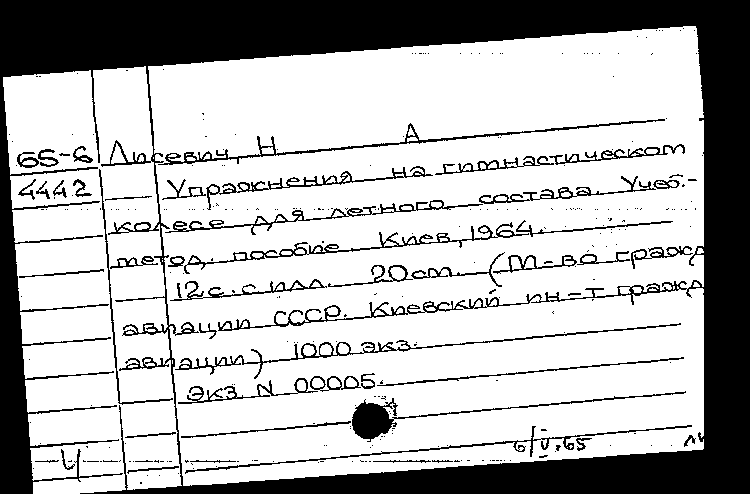 65-6 Лисевич, Н А
4442 Упражнения на гимнастическом
колесе для летного состава. Учеб.-
метод. пособие. Киев, 1964.
12 с. с илл. 20 см. (М-во гражд
авиации СССР. Киевский ин-т гражд
авиации) 1000 экз.
Экз. N 00005.
6/V.65
Ч